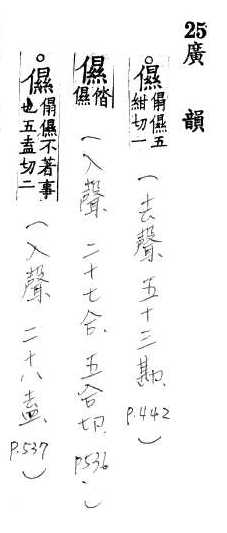 25廣韻
儑傝儑五紺切一(去聲 五十三勘、P.442)
儑儑(入聲 二十七合、五合切、P.536、)
儑傝儑不著事也五盍切二(入聲 二十八盍、P.537)